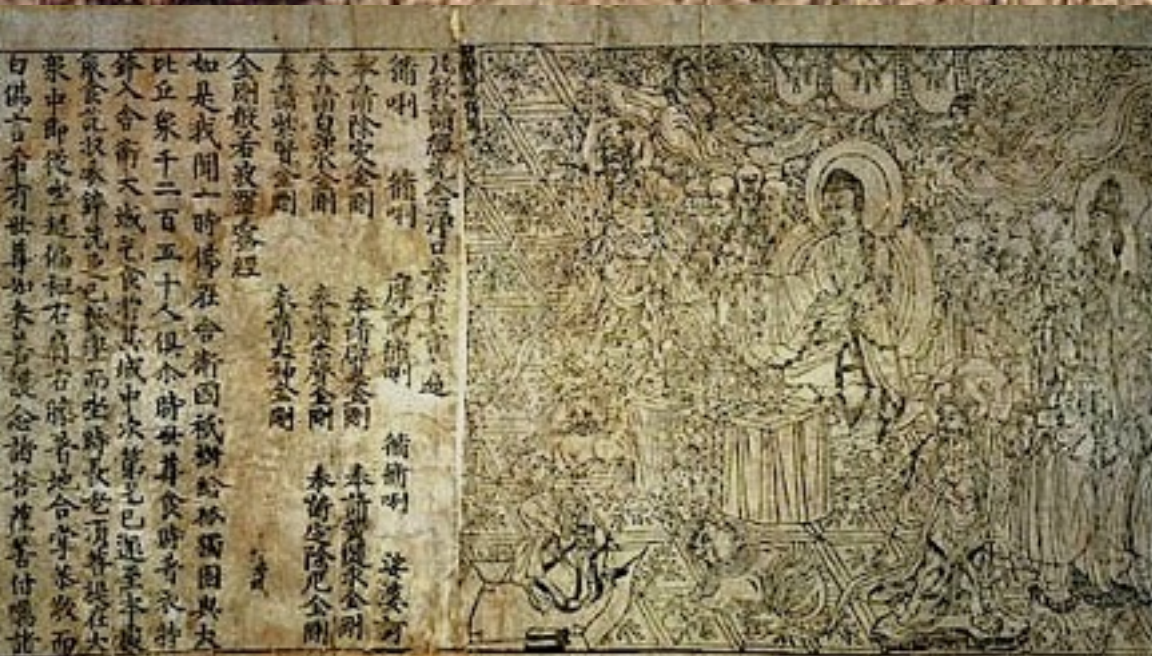 凡欲讀經先念淨口業真言一遍
脩唎 脩唎 摩訶脩唎 脩脩唎 娑婆訶
奉請除灾金剛 奉請辟毒金剛 奉請黃隨求金剛
奉請白淨水金剛 奉請赤聲金剛 奉請定除厄金剛
奉請紫賢金剛 奉請大神金剛
金剛般若波羅蜜經
如是我聞一時佛在舍衛國祇樹給孤獨園與大
比丘衆千二百五十人俱尒時世尊食時著衣持
鉢入舍衛大城乞食於其城中次第乞已還至本處
飯食訖収衣鉢洗足已敷座而坐時長老須菩提在大
衆中即從坐起偏袒右肩右膝著地合掌恭敬而
白佛言希有世尊如來善護念諸菩薩善付囑諸